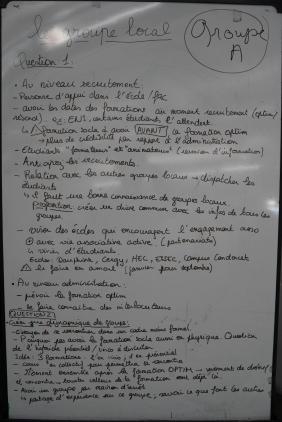 Le groupe local
Groupe
A
Question 1.
• Au niveau recrutement:
- Personne d'appui dans l'école/fac
- avoir les dates des formations au moment recrutement (optim/
résend) ex: ENS, certains étudiants l'attendent.
↳ ⚠ formation socle à avoir AVANT la formation optim
→ plus de crédibilité par rapport à l'administration
- Etudiants "formateurs" et "animateurs" (réunion d'information)
- Anticiper les recrutements.
- Relation avec les autres groupes locaux → dispatcher les
étudiants
↳ il faut une bonne connaissance de groupes locaux.
Proposition: créer un drive commun avec les infos de tous les
groupes.
- viser des écoles qui encouragent l'engagement asso
⊕ avec vie associative active (partenariats)
↳ vivier d'étudiants
Ecoles: Dauphine, Cergy, HEC, ESSEC, campus Condorcet
⚠ le faire en amont (janvier pour septembre)
• Au niveau administration:
- prévoir la formation optim
- se faire connaître des interlocuteurs
QUESTION 2:
Créer une dynamique de groupe:
- Essayer de se rencontrer dans un cadre moins formel.
- Pourquoi pas avoir la formation socle aussi en physique. Question
de l'hybride présentiel/visio à discuter
Idée: 3 formations: 2 en visio, 1 en présentiel
- cours en collectif pour permettre la rencontre
- Moment ensemble après la formation OPTIM → moment de
et rencontre
- Avoir un groupe par
↳ partage d'expérience sur ce groupe, savoir ce que font les autres